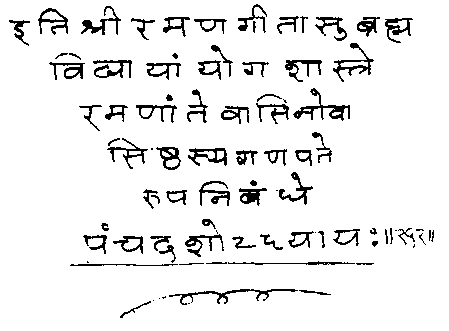 इति श्री रमण गीतासु ब्रह्म
विद्यायां योग शास्त्रे
रमणांते वासिनोवा
सिष्ठस्यगणपते
रुपनिबंधे
पंचदशोऽध्यायः॥२५२॥